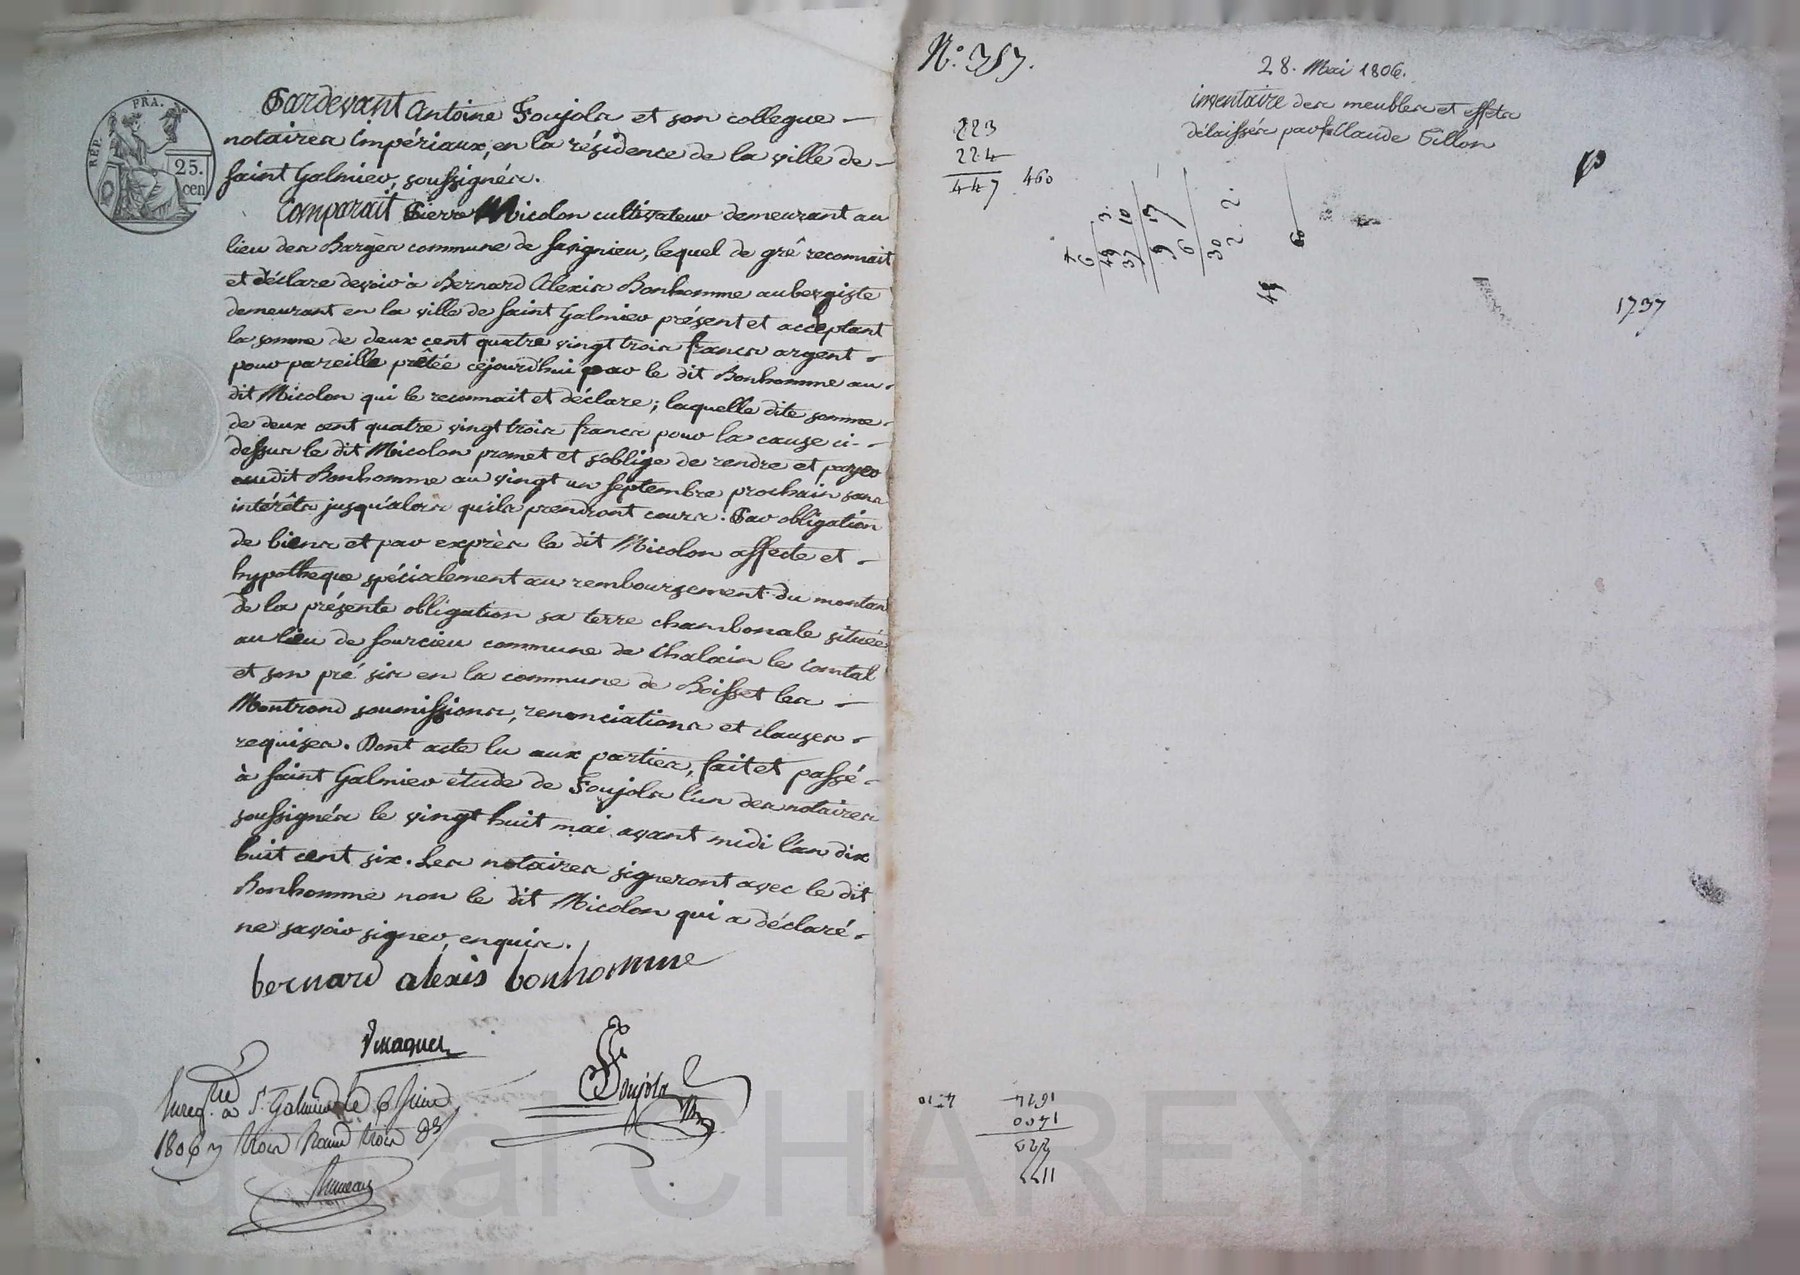 REP. FRA.
25.
cen
Pardevant Antoine Foujols et son collegue
notaires impériaux, en la résidence de la ville de
saint Galmier, soussignés.
Comparait Pierre Micolon cultivateur demeurant au
lieu des Barges commune de savignieu, lequel de gré reconnait
et déclare devoir à Bernard Alexis Bonhomme aubergiste
demeurant en la ville de saint Galmier présent et acceptant
la somme de deux cent quatre vingt trois francs argent
pour pareille prêtée cejourd'hui par le dit Bonhomme au
dit Micolon qui le reconnait et déclare; laquelle dite somme
de deux cent quatre vingt trois francs pour la cause ci-
dessus le dit Micolon promet et s'oblige de rendre et payer
audit Bonhomme au vingt un septembre prochain sans
intérêts jusqu'alors qu'ils prendront cours. Par obligation
de biens et par exprès le dit Micolon affecte et
hypotheque spécialement au remboursement du montan
de la présente obligation sa terre chambonale située
au lieu de sourcieu commune de Chalain le Comtal
et son pré sis en la commune de Boisset les
Montrond soumissions, renonciations et clauses
requises. Dont acte lu aux parties, fait et passé
à saint Galmier étude de Foujols l'un des notaires
soussignés le vingt huit mai avant midi l'an dix
huit cent six. Les notaires signeront avec le dit
Bonhomme non le dit Micolon qui a déclaré
ne savoir signer, enquis.
bernard alexis bonhomme
Foujols
Enreg.tré à St. Galmier le 6 Juin
1806
N.° 357.
28. Mai 1806.
inventaire des meubles et effets
délaissés par Claude Tillon
223
224
447 460
1737
1624
1400
223
1177
Pascal CHAREYRON